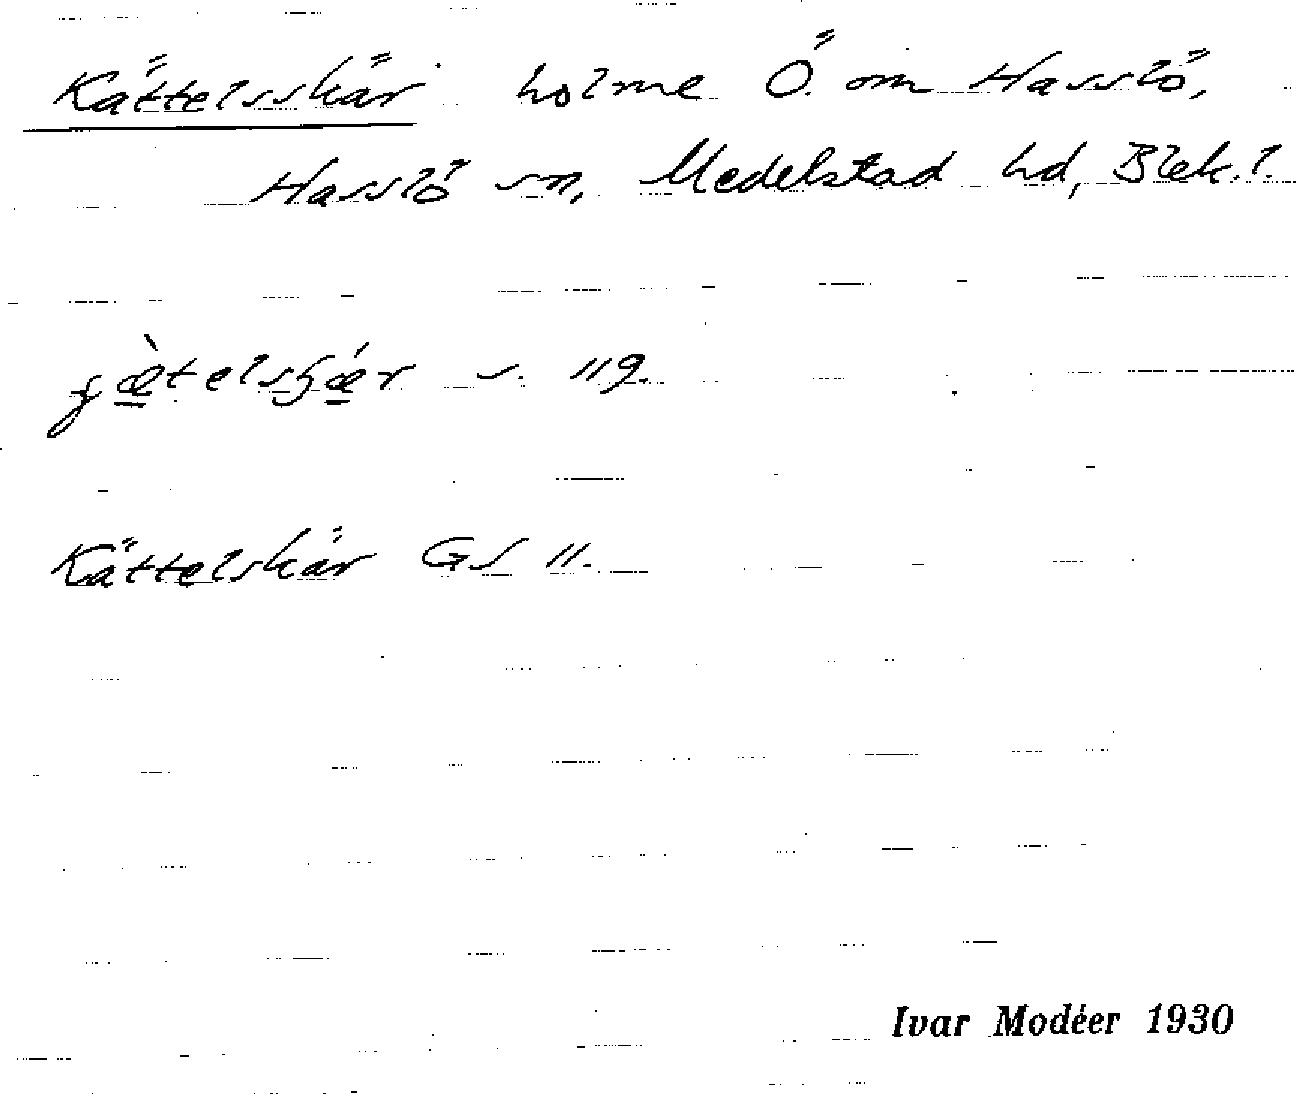 Kättelsskär holme Ö. om Hasslö,
Hasslö sn, Medelstad hd, Blek. l.
s. 119.
Kättelskär GS 11.
Ivar Modéer 1930